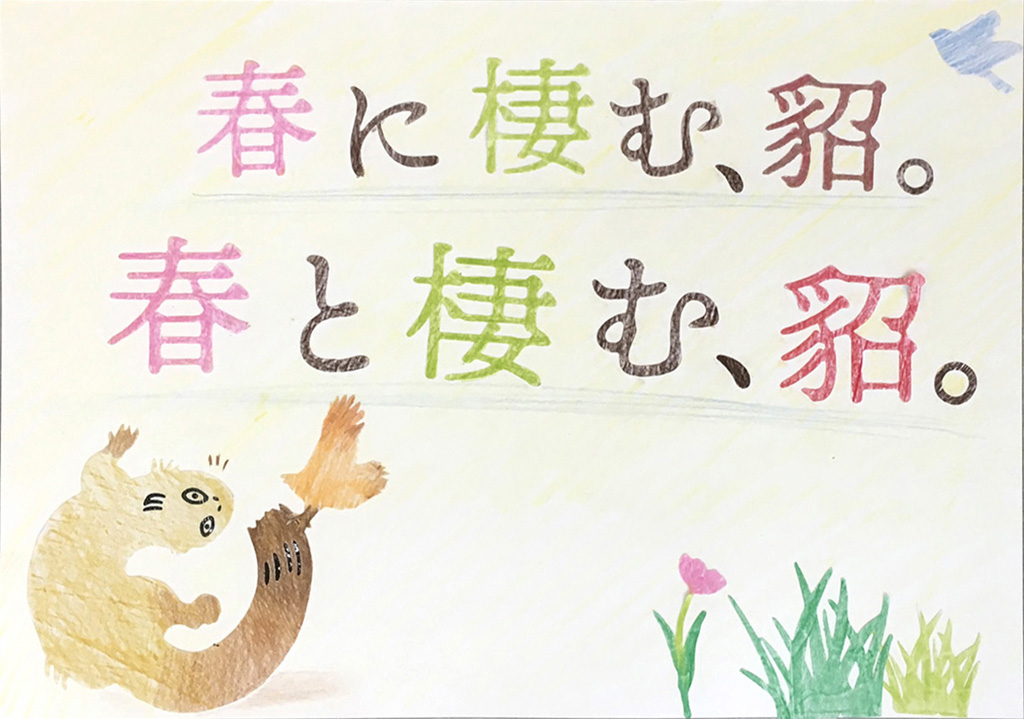 春に棲む、貂。
春と棲む、貂。